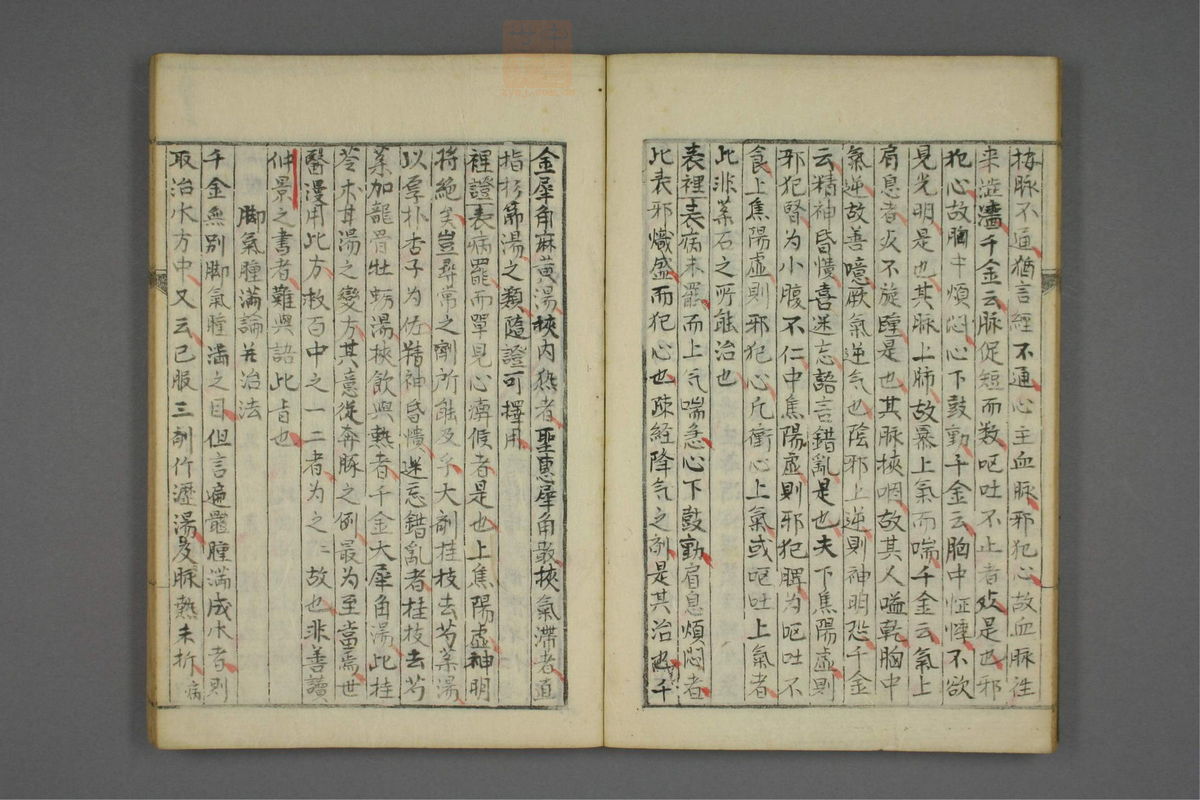 梅脉不通猶言經不通心主血脉邪犯心故血脉徃
来澁濇千金云脉促短而数嘔吐不止者死是也邪
犯心故胸中煩悶心下鼓動千金云胸中怔悸不欲
見光明是也其脉上肺故暴上氣而喘千金云氣上
肩息者死不旋踵是也其脉挾咽故其人嗌乾胸中
氣逆故善噫厥氣逆气也陰邪上逆則神明恐千金
云精神昏憒喜迷忘語言錯亂是也夫下焦陽虚則
邪犯腎为小腹不仁中焦陽虚則邪犯脾为嘔吐不
食上焦陽虚則邪犯心凡衝心上氣或嘔吐上氣者
此非菜石之所能治也
表裡表病未罷而上气喘急心下鼓動肩息煩悶者
此表邪熾盛而犯心也疎経降气之剤是其治也千
金犀角麻黄湯挾内𤍠者聖惠犀角散挾氣滞者直
指杉節湯之類隨證可擇用
裡證表病罷而單見心痹候者是也上焦陽虚神明
将絶矣豈尋常之劑所能及乎大剤桂枝去芍薬湯
以厚朴杏子为佐精神昏憒迷忘錯亂者桂枝去芍
薬加龍骨牡蛎湯挾飲與𤍠者千金大犀角湯此桂
苓朮甘湯之變方其意從奔豚之例最为至當焉世
醫漫用此方救百中之一二者为之〻故也非善讀
仲景之書者難與語此旨也
脚氣腫満論并治法
千金無別脚氣腫満之目但言遍體腫満成水者則
取治水方中又云已服三剤竹瀝湯及脉熱未折病